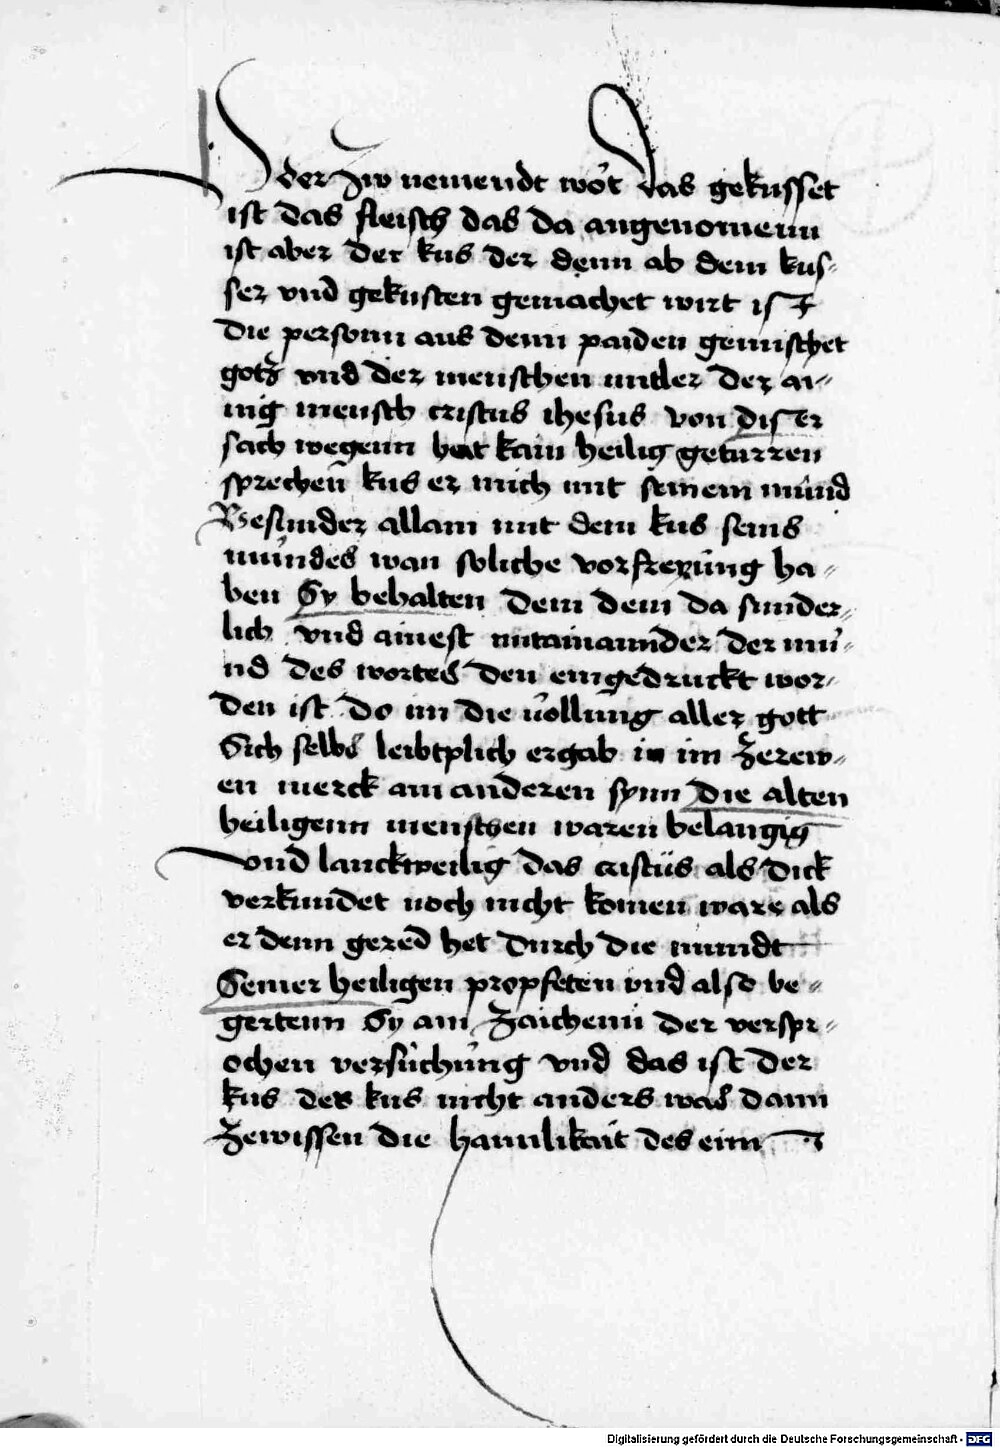 der zw nemendt wort das gekusset
ist das fleisch das da angenomenn
ist aber der kus der denn ab dem kus-
ser vnd gekusten gemachet wirt ist
die personn aus denn paiden gemischet
gotz vnd der menschen mitler der ai-
nig mensch cristus ihesus von diser
sach wegenn hat kain heilig geturren
sprechen kus er mich mit seinem mund
Besunder allain mit dem kus seins
mundes wan soliche vorfreyung ha-
ben Sy behalten dem dem da sunder-
lich vnd ainest mitainannder der mu-
nd des wortes den eingedruckt wor-
den ist do im die vollung aller gott
Sich selbs leibtplich ergab in im zerew-
en merck ain anderen synn die alten
heiligenn menschen waren belangig
vnd lanckweilig das cristus als dick
verkundet noch nicht komen ware als
er denn gered het durch die mundt
Seiner heiligen propfeten vnd also be-
gertenn Sy ain zaichenn der verspr-
ochen versuchung vnd das ist der
kus des kus nicht anders was dann
zewissen die hamlikait des ein
Digitalisierung gefördert durch die Deutsche Forschungsgemeinschaft - DFG